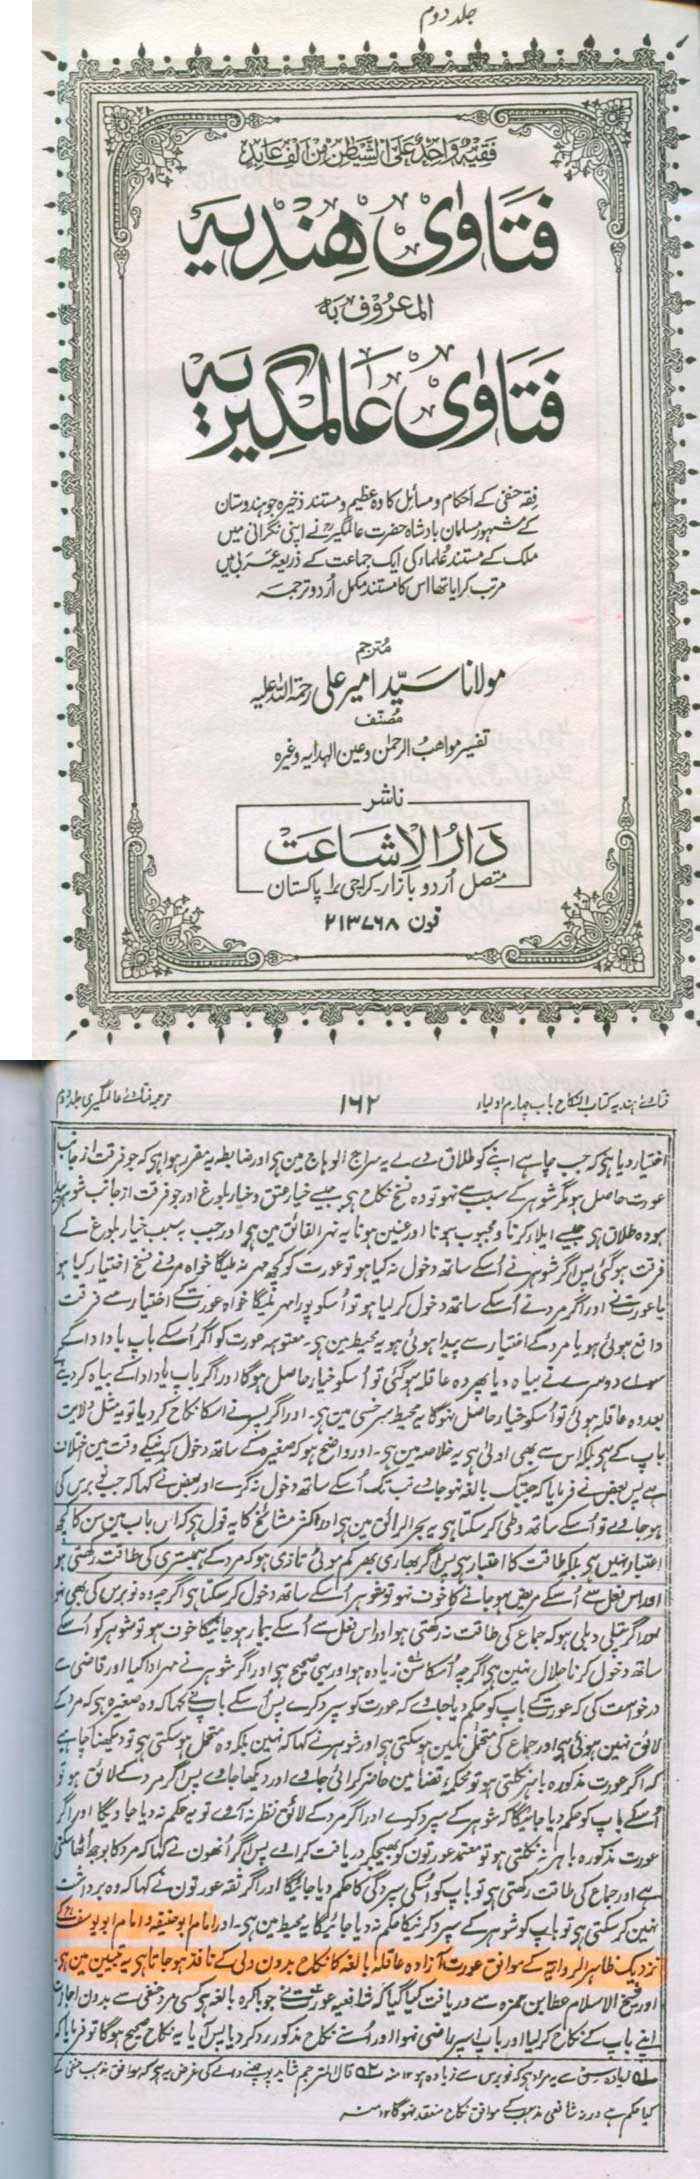 جلد دوم
فَقِيهٌ وَاحِدٌ عَلَى الشَّيْطٰنِ مِنْ اَلْفِ عَابِدٍ
فَتَاوٰی هِنْدِیَه
المعروف به
فَتَاوٰی عَالمگیریَه
فقہ حنفی کے احکام و مسائل کا وہ عظیم و مستند ذخیرہ جو ہندوستان
کے مشہور مسلمان بادشاہ حضرت عالمگیرؒ نے اپنی نگرانی میں
ملک کے مستند علماء کی ایک جماعت کے ذریعہ عربی میں
مرتب کرایا تھا اس کا مستند مکمل اُردو ترجمہ
مُترجم
مولانا سیّد امیر علی رحمۃ اللہ علیہ
مُصنّف
تفسیر مواہب الرحمٰن و عین الہدایہ وغیرہ
ناشر
دَارُ الاِشَاعَت
متصل اُردو بازار۔ کراچی ۱ پاکستان
فون ۲۱۳۷۶۸
فتاوے ہندیہ کتاب النکاح باب چہارم اولیاء
۱۶۲
ترجمہ فتاوے عالمگیری جلد دوم
اختیار دیا ہی کہ جب چاہے اپنے کو طلاق دے لے یہ سراج الوہاج مین ہی اور ضابطہ یہ مقرر ہوا ہی کہ جو فرقت از جانب
عورت حاصل ہو مگر شوہر کے سبب سے نہو تو وہ فسخ نکاح ہی جیسے خیار عتق و خیار بلوغ اور جو فرقت از جانب شوہر
ہو وہ طلاق ہی جیسے ایلاء کرنا و مجبوب ہونا اور عنین ہونا یہ نہر الفائق مین ہی اور جب بہ سبب خیار بلوغ کے
فرقت ہو گئی پس اگر شوہر نے اُسکے ساتھ دخول نہ کیا ہو تو عورت کو کچھ مہر نہ ملیگا خواہ مرد نے فسخ اختیار کیا ہو
یا عورت نے اور اگر مرد نے اُسکے ساتھ دخول کر لیا ہو تو اُسکو پورا مہر ملیگا خواہ عورت کے اختیار سے فرقت
واقع ہوئی ہو یا مرد کے اختیار سے پیدا ہوئی ہو یہ محیط مین ہی۔ معتوہہ عورت کو اگر اُسکے باپ یا دادا کے
سواے دوسرے نے بیاہ دیا پھر وہ عاقلہ ہو گئی تو اُسکو خیار حاصل ہوگا اور اگر باپ یا دادا کے بیاہ کر دینے
بعد وہ عاقلہ ہوئی تو اُسکو خیار حاصل نہوگا یہ محیط سرخسی مین ہی۔ اور اگر پسر نے اسکا نکاح کر دیا تو یہ مثل ولایت
باپ کے ہی بلکہ اس سے بھی اولیٰ ہی یہ خلاصہ مین ہی۔ اور واضح ہو کہ صغیرہ کے ساتھ دخول کرنیکے وقت مین اختلاف
ہے پس بعض نے فرمایا کہ جبتک بالغہ نہو جاوے تب تک اُسکے ساتھ دخول نہ کرے اور بعض نے کہا کہ جب نو برس کی
ہو جاوے تو اُسکے ساتھ وطی کر سکتا ہی یہ بحر الرائق مین ہی اور اکثر مشائخ کا یہ قول ہی کہ اس باب مین سن کا کچھ
اعتبار نہین ہی بلکہ طاقت کا اعتبار ہی پس اگر بھاری بھر کم موٹی تازی ہو کہ مرد کے ہمبستری کی طاقت رکھتی ہو
اور اس فعل سے اُسکے مریض ہو جانے کا خوف نہو تو شوہر اُسکے ساتھ دخول کر سکتا ہی اگرچہ وہ نو برس کی بھی نہو
اور اگر پتلی دبلی ہو کہ جماع کی طاقت نہ رکھتی ہو اور اس فعل سے اُسکے بیمار ہو جانیکا خوف ہو تو شوہر کو اُسکے
ساتھ دخول کرنا حلال نہین ہی اگرچہ اُسکا سن زیادہ ہو اور یہی صحیح ہی اور اگر شوہر نے مہر ادا کیا اور قاضی سے
درخواست کی کہ عورت کے باپ کو حکم دیا جاوے کہ عورت کو سپرد کرے پس اُسکے باپ نے کہا کہ وہ صغیرہ ہی کہ مرد کے
لائق نہین ہوئی ہی اور جماع کی متحمل نہین ہو سکتی ہی اور شوہر نے کہا کہ نہین بلکہ وہ متحمل ہو سکتی ہی تو دیکھنا چاہیے
کہ اگر عورت مذکورہ باہر نکلتی ہو تو محکمۂ قضا مین حاضر کرائی جاوے اور دیکھا جاوے پس اگر مرد کے لائق ہو تو
اُسکے باپ کو حکم دیا جائیگا کہ شوہر کے سپرد کرے اور اگر مرد کے لائق نظر نہ آوے تو یہ حکم نہ دیا جاویگا اور اگر
عورت مذکورہ باہر نہ نکلتی ہو تو معتمد عورتون کو بھیجکر دریافت کراوے پس اگر اُنھون نے کہا کہ مرد کا بوجھ اُٹھا سکتی
ہے اور جماع کی طاقت رکھتی ہی تو باپ کو اُسکی سپردگی کا حکم دیا جائیگا اور اگر ثقہ عورتون نے کہا کہ وہ برداشت
نہین کر سکتی ہی تو باپ کو شوہر کے سپرد کرنیکا حکم نہ دیا جائیگا یہ محیط مین ہی۔ اور امام ابو حنیفہ و امام ابو یوسف کے
نزدیک ظاہر الروایۃ کے موافق عورت آزادہ عاقلہ بالغہ کا نکاح بدون ولی کے نافذ ہو جاتا ہی یہ تبیین مین ہی۔
اور شیخ الاسلام عطا بن حمزہ سے دریافت کیا گیا کہ شافعیہ عورت نے جو باکرہ بالغہ ہی کسی مرد حنفی سے بدون اجازت
اپنے باپ کے نکاح کر لیا اور باپ اسپر راضی نہوا اور اُسنے نکاح مذکور رد کر دیا پس آیا یہ نکاح صحیح ہوگا تو فرمایا کہ
۵۱ زیادہ سن سے یہ مراد ہی کہ نو برس سے زیادہ ہو ۱۲ منہ ۵۲ قال المترجم شاید پوچھنے والے کی غرض یہ ہی کہ موافق مذہب حنفی کے
کیا حکم ہے ورنہ شافعی مذہب کے موافق نکاح منعقد نہوگا ۱۲ منہ